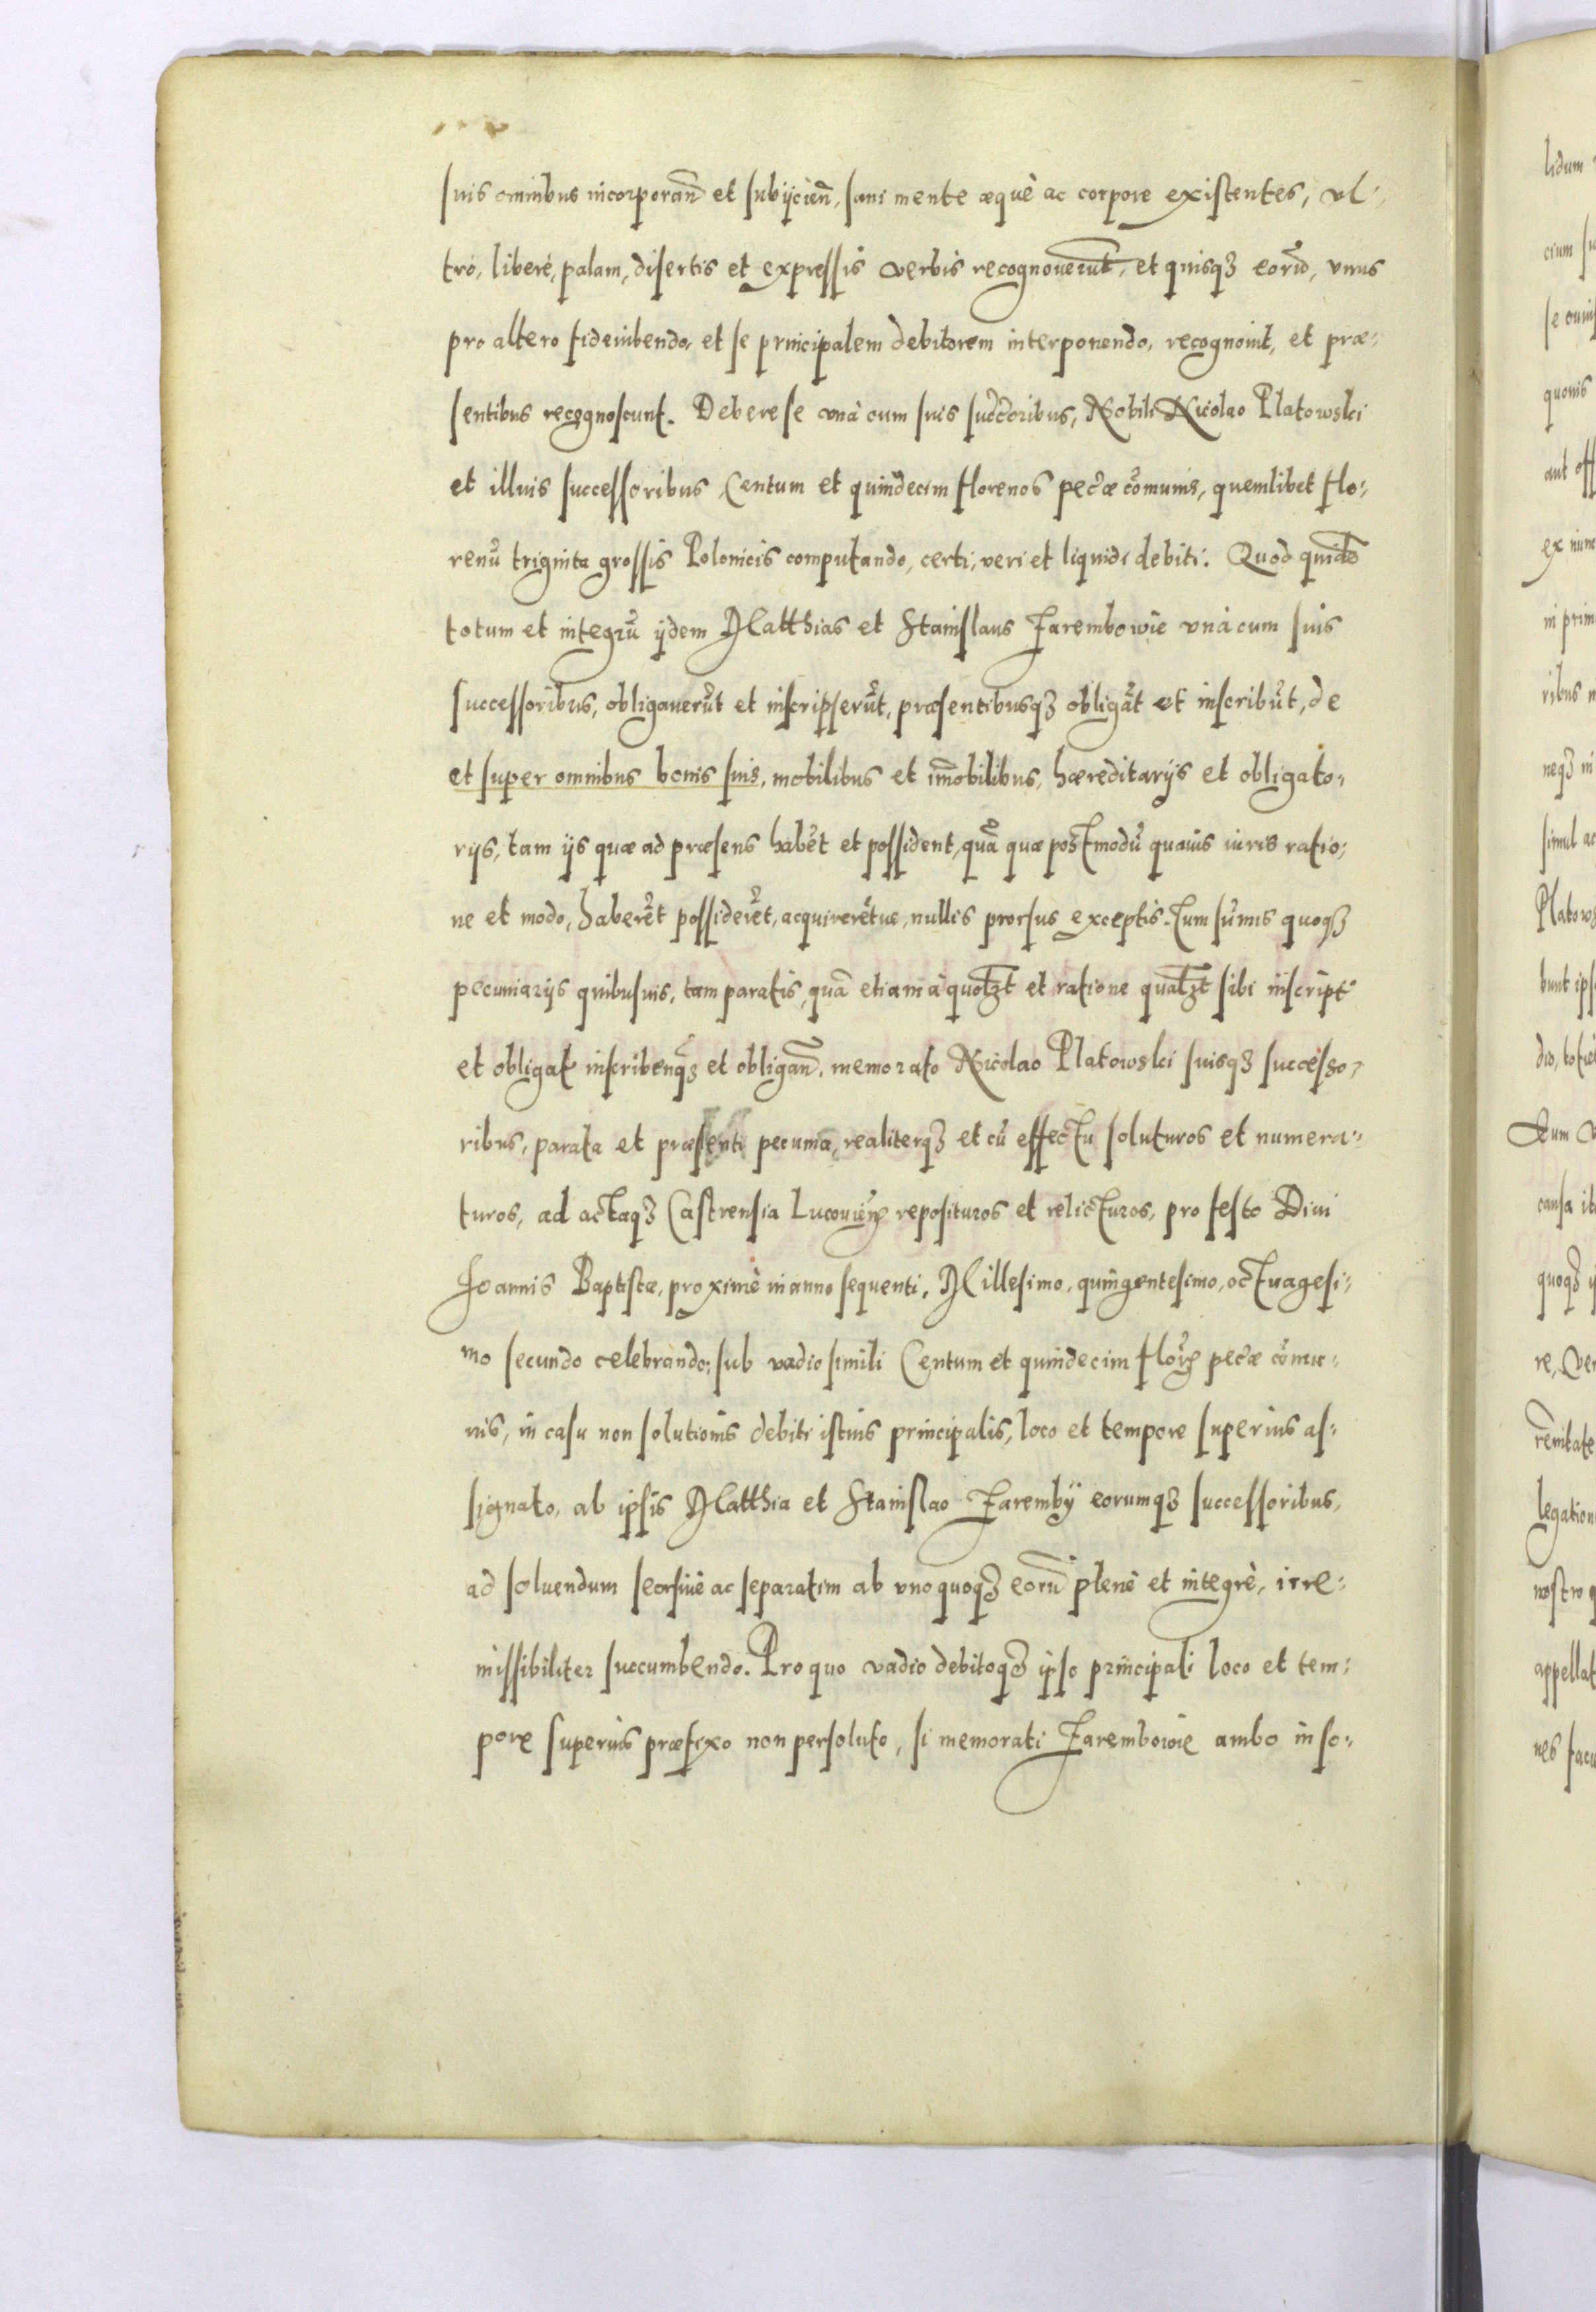 suis omnibus incorporan̄ et subijcien̄, sani mente æquè ac corpore existentes, vl-
trò, liberè, palam, disertis et expressis verbis recognouerūt, et quisqꝫ eorū, vnus
pro altero fideiubendo, et se principalem debitorem interponendo, recognouit, et præ-
sentibus recognoscunt. Debere se vnà cum suis succ̄oribus, Nobili Nicolao Platowski
et illius successoribus Centum et quindecim florenos pec̄æ cōmunis, quemlibet flo-
renū triginta grossis Polonicis computando, certi, veri et liquidi debiti. Quod quidē
totum et integrū ijdem Matthias et Stanislaus Zarembowie vnà cum suis
successoribus, obligauerūt et inscripserūt, præsentibusqꝫ obligāt et inscribūt, de
et super omnibus bonis suis, mobilibus et im̄obilibus, hæreditarijs et obligato-
rijs, tam ijs quæ ad præsens habēt et possident, quā quæ postmodū quauis iuris ratio-
ne et modo, haberēt possiderēt, acquirerētue, nullis prorsus exceptis. Tum sūmis quoqꝫ
pecuniarijs quibusuis, tam paratis, quā etiam à quolꝫt et ratione qualꝫt sibi inscript
et obligat inscribenqꝫ et obligan̄, memorato Nicolao Platowski suisqꝫ successo-
ribus, parata et præsenti pecunia, realiterqꝫ et cū effectu soluturos et numera-
turos, ad actaqꝫ Castrensia Lucouien̄ reposituros et relicturos, pro festo Diui
Joannis Baptistæ, proximè in anno sequenti, Millesimo, quingentesimo, octuagesi-
mo secundo celebrando: sub vadio simili Centum et quindecim flor̄ pec̄æ cōmu-
nis, in casu non solutionis debiti istius principalis, loco et tempore superius as-
signato, ab ipsis Matthia et Stanislao Zaremby eorumqꝫ successoribus,
ad soluendum seorsiuè ac separatim ab vnoquoqꝫ eorū plenè et integrè, irre-
missibiliter succumbendo. Pro quo vadio debitoqꝫ ipso principali loco et tem-
pore superius præfixo non persoluto, si memorati Zarembowie ambo in so-